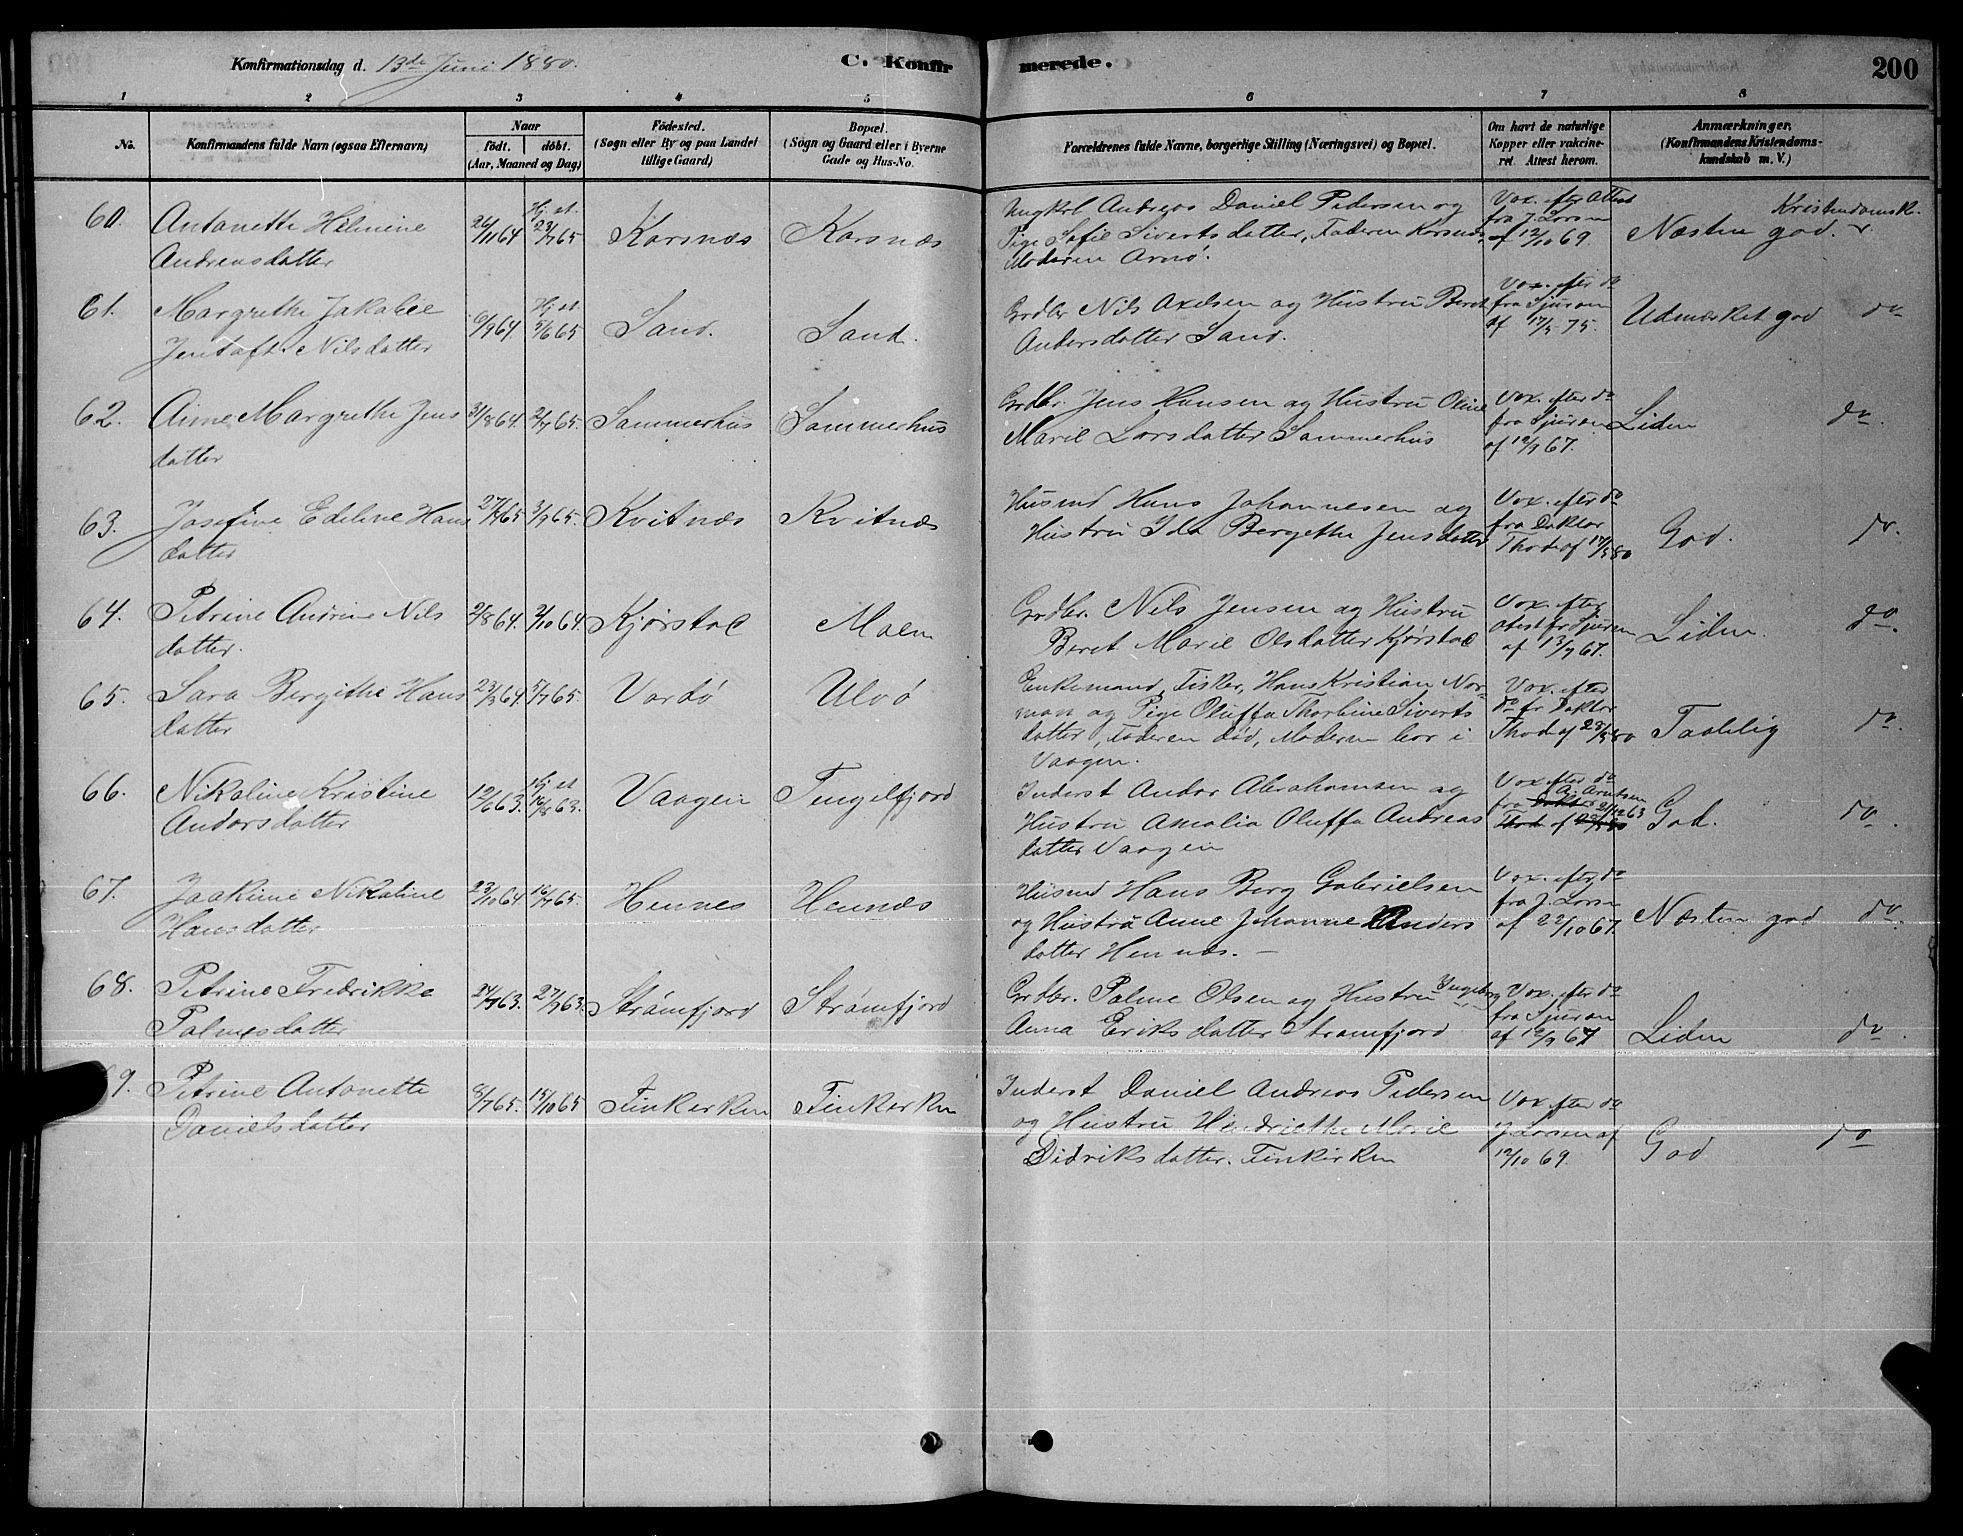 Konfirmationsdag d. 13de Juni 1880.
C. Konfirmerede.
200
1 2 3 4 5 6 7 8
No.
Konfirmandens fulde Navn (ogsaa Efternavn)
Naar
födt. döbt.
(Aar, Maaned og Dag)
Födested.
(Sogn eller By og paa Landet
tillige Gaard)
Bopæl.
(Sogn og Gaard eller i Byerne
Gade og Hus-No.
Forældrenes fulde Navne, borgerlige Stilling (Næringsvei) og Bopæl.
Om havt de naturlige
Kopper eller vakcine-
ret. Attest herom.
Anmærkninger.
(Konfirmandens Kristendoms-
kundskab m. V.)
60. Antonette Helmine
Andreasdatter
26/11 64 Hj. st. 23/7 65 Korsnæs Korsnæs
Ungkrl Andreas Daniel Pedersen og
Pige Sofie Sivertsdatter, Faderen Korsnæs,
Moderen Arnø.
Vox. efter Attest
fra J. Lorsen
af 12/10 69.
Kristendomsk.
Næsten god.
61. Margrethe Jakobie
Jentoft Nilsdatter
6/9 64 Hj. st. 5/6 65 Sand. Sand.
Grdbr Nils Axelsen og Hustru Beret
Andersdatter Sand.
Vox. efter do
fra Sjuron
af 17/5 75.
Udmærket god do
62. Anne Margrethe Jens
datter
31/8 64. 2/7 65. Sommerhus Sommerhus
Grdbr. Jens Hansen og Hustru Oline
Marie Larsdatter Sommerhus
Vox. efter do
fra Sjuron
af 12/9 67.
Liden do.
63. Josefine Edeline Hans
datter
27/7 65 3/9 65. Kvitnæs Kvitnæs
Husmd Hans Johannesen og
Hustru Ida Bergethe Jensdatter
Vox. efter do
fra Doktor
Thode af 17/5 80
God. do.
64. Petrine Andrine Nils
datter.
2/8 64. 2/10 64. Kjørstad Moen
Grdbr. Nils Jensen og Hustru
Beret Marie Olsdatter Kjørstad
Vox. efter
atest fr Sjuron
af 13/9 67.
Liden. do.
65. Sara Bergithe Hans
datter
23/3 64. 5/7 65. Vardø Ulvø
Enkemand, Fisker, Hans Kristian Nor-
man og Pige Oluffa Thorbine Siverts
datter, Faderen død, Moderen bor i
Vaagen.
Vox. efter
do fr Doktor
Thode af 23/5 80
Taalelig do.
66. Nikoline Kristine
Andorsdatter
12/6 63. Hj. st 16/8 63. Vaagen Tengelfjord
Inderst Andor Abrahamsen og
Hustru Amalia Oluffa Andreas
datter Vaagen
Vox efter do
fra Doktor A. Arntsen
Thode af 21/12 63
God. do.
67. Joakime Nikoline
Hansdatter
23/10 64 16/7 65. Hennes Hennæs
Husmd Hans Berg Gabrielsen
og Hustru Anne Johanne Anders
datter Hennæs. —
Vox. efter do
fra J. Lorsn
af 22/10 67.
Næsten god do.
68. Petrine Fredrikke
Palmesdatter
24/7 63. 27/9 63. Strømfjord Strømfjord
Grdbr. Palme Olsen og Hustru Ingeborg
Anna Eriksdatter Strømfjord
Vox. efter do
fra Sjuron
af 12/9 67
Liden do.
69. Petrine Antonette
Danielsdatter
8/7 65. 15/10 65 Finkerken Finkerken
Inderst Daniel Andreas Pedersen
og Hustru Hendriethe Marie
Didriksdatter. Finkirken
Vox efter do
J Lorsen af
12/10 69.
God do